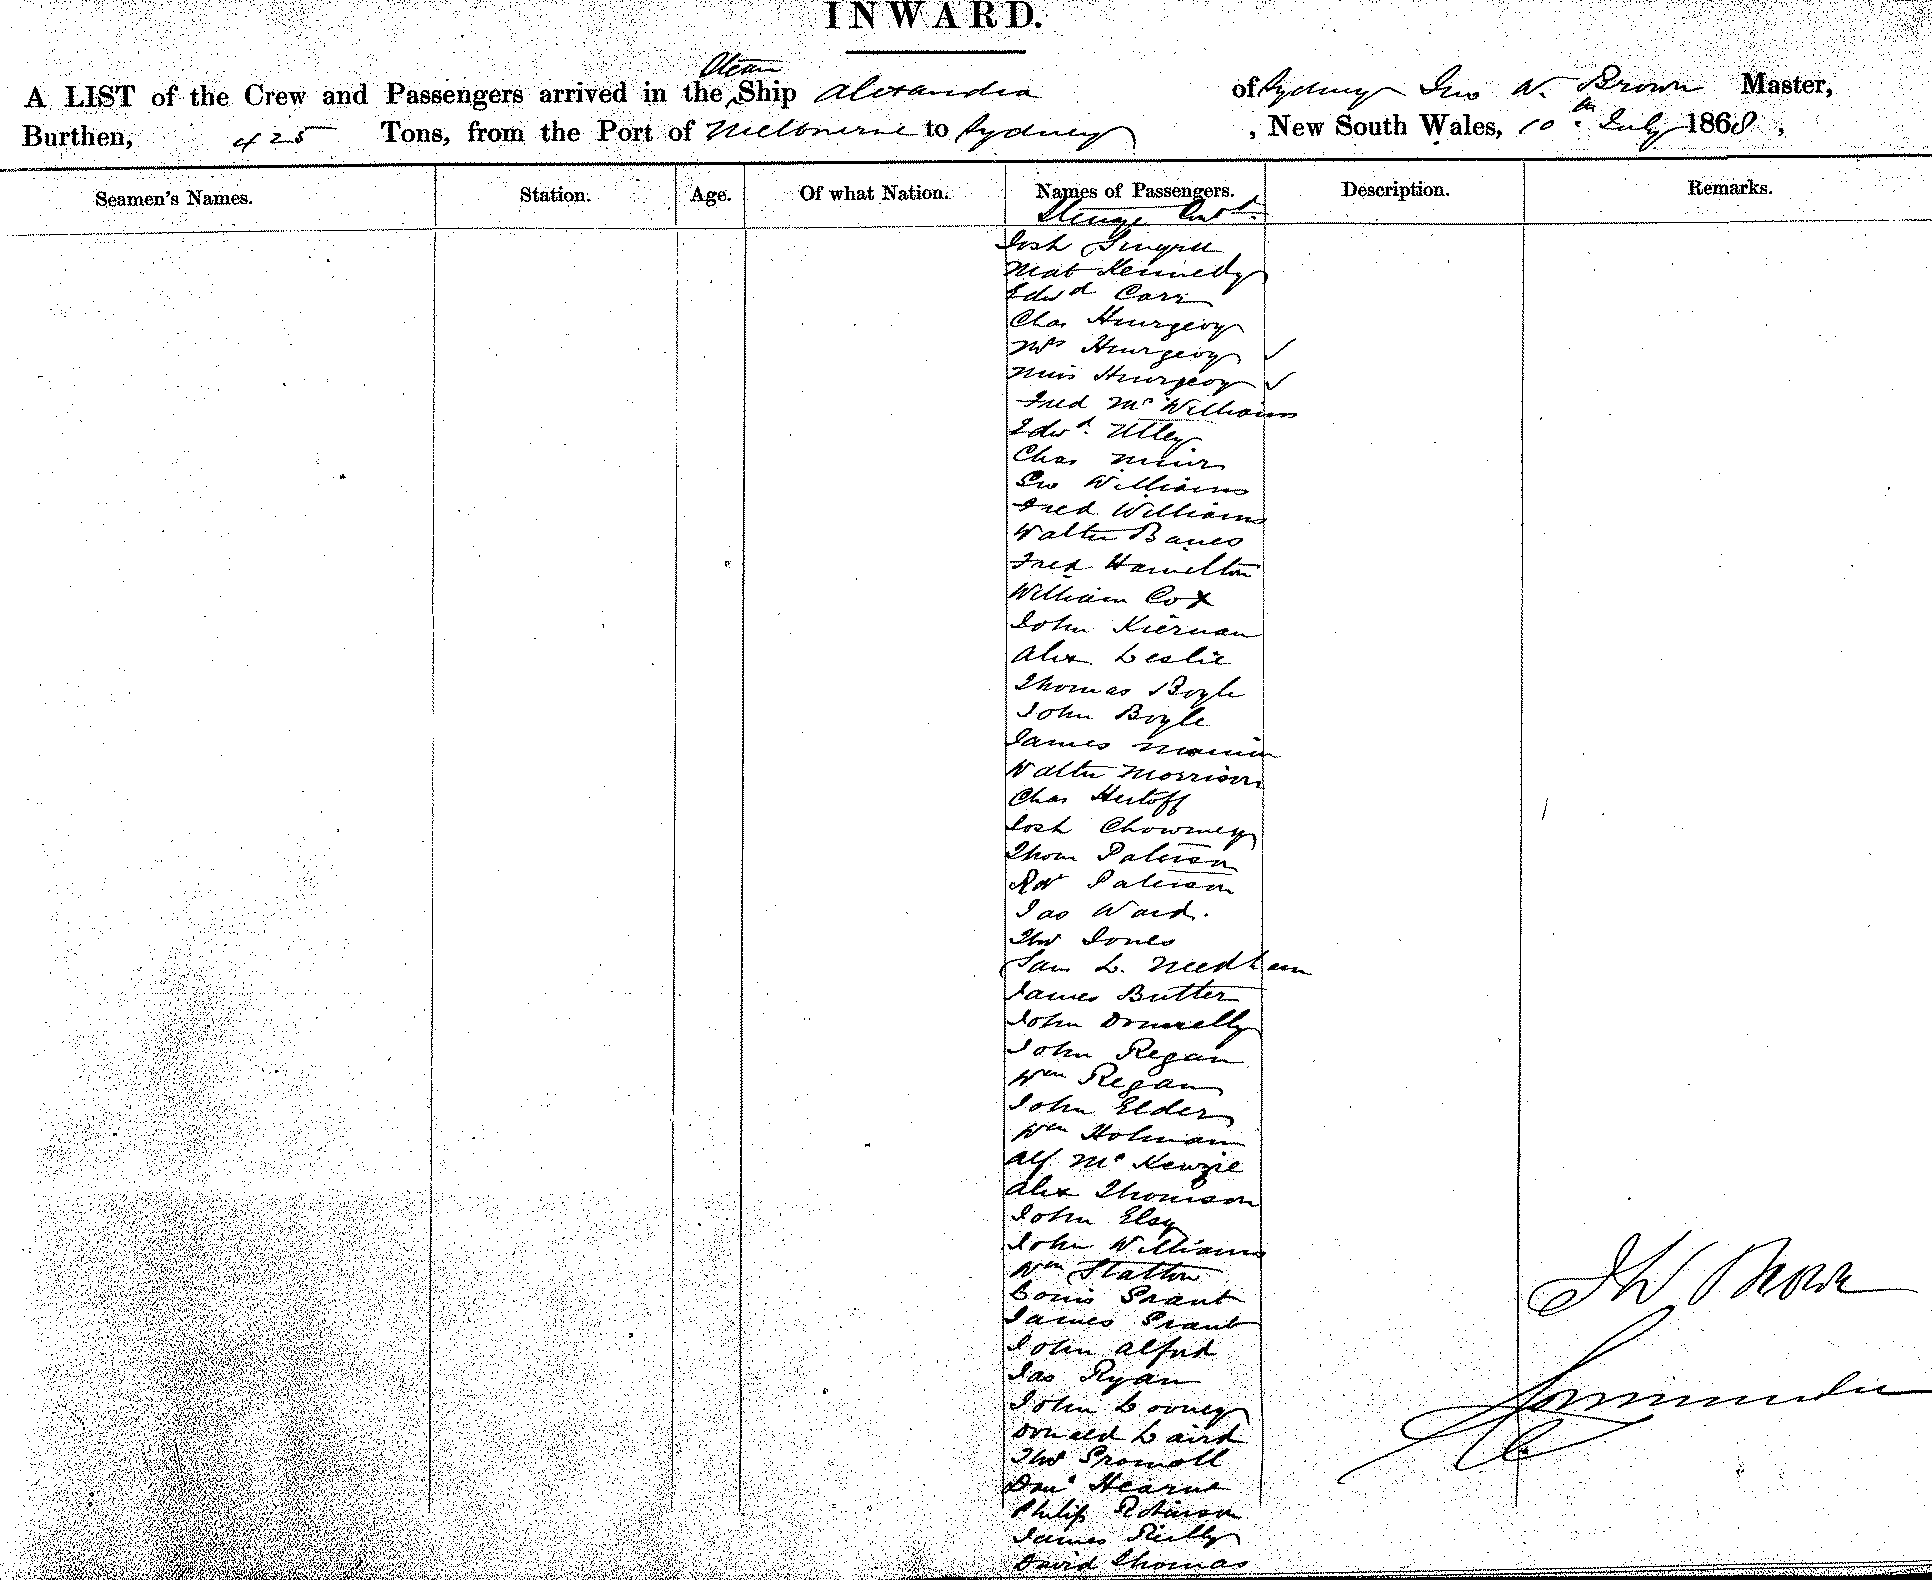 INWARD.
A LIST of the Crew and Passengers arrived in the Steam Ship Alexandra of Sydney Jno W. Brown Master,
Burthen, 425 Tons, from the Port of Melbourne to Sydney, New South Wales, 10th July 1868,
Seamen's Names. Station. Age. Of what Nation. Names of Passengers. Description. Remarks.
Steerage Contd.
Josh
Mat Kennedy
Edwd Carr
Chas Hungeroy
Mrs Hungeroy ✓
Miss Hungeroy ✓
Fred McWilliams
Edwd. Utley
Chas Muir
Geo Williams
Fred Williams
Walter Banes
Fred Hamelton
William Cox
John Kiernan
Alex Leslie
Thomas Boyle
John Boyle
James
Walter Morrison
Chas Hertoff
Josh Chowney
Thom Paterson
Rot Paterson
Jas Ward.
Thos Jones
Sam L. Needham
James Butter
John Donnelly
John Regan
Wm Regan
John Elder
Wm Holman
Alf McKenzie
Alex Thomson
John Elsy
John Williams
Wm Statton
Louis Grant
James Grant
John Alfred
Jas Ryan
John Looney
Donald Laird
Thos
Danl Hearne
Philip Robinson
James Reilly
David Thomas
JW Brown
Commander